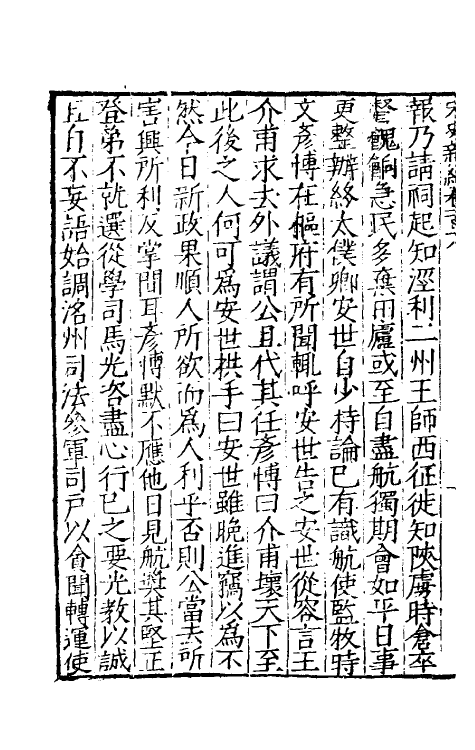 報乃請祠起知涇利二州王師西征徙知陝虜時倉卒
督餽餉急民多棄田廬或至自盡航獨期會如平日事
更整辦終太僕卿安世自少持論已有識航使監牧時
文彥博在樞府有所聞輒呼安世告之安世從容言王
介甫求去外議謂公且代其任彥博曰介甫壞天下至
此後之人何可爲安世拱手曰安世雖晚進竊以爲不
然今日新政果順人所欲而爲人利乎否則公當去所
害興所利反掌間耳彥博默不應他日見航奬其堅正
登第不就選從學司馬光咨盡心行已之要光教以誠
且自不妄語始調洺州司法參軍司戶以貪聞轉運使